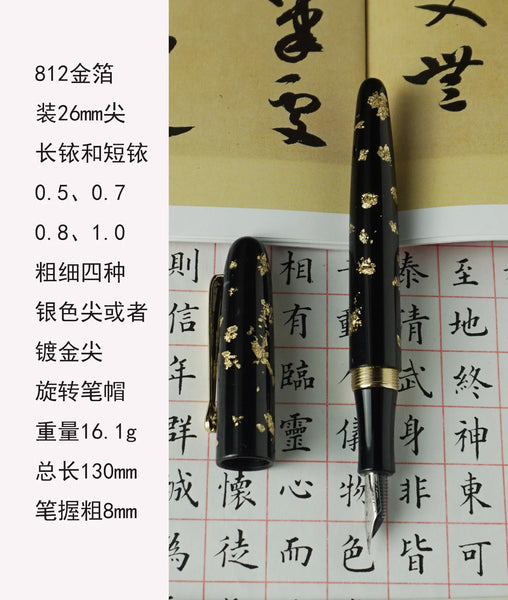 812金箔
装26mm尖
长铱和短铱
0.5、0.7
0.8、1.0
粗细四种
银色尖或者
镀金尖
旋转笔帽
重量16.1g
总长130mm
笔握粗8mm
至地終神東可
泰清武身非皆
動儀物色
相有臨靈心而
懷徒
則信年群成為